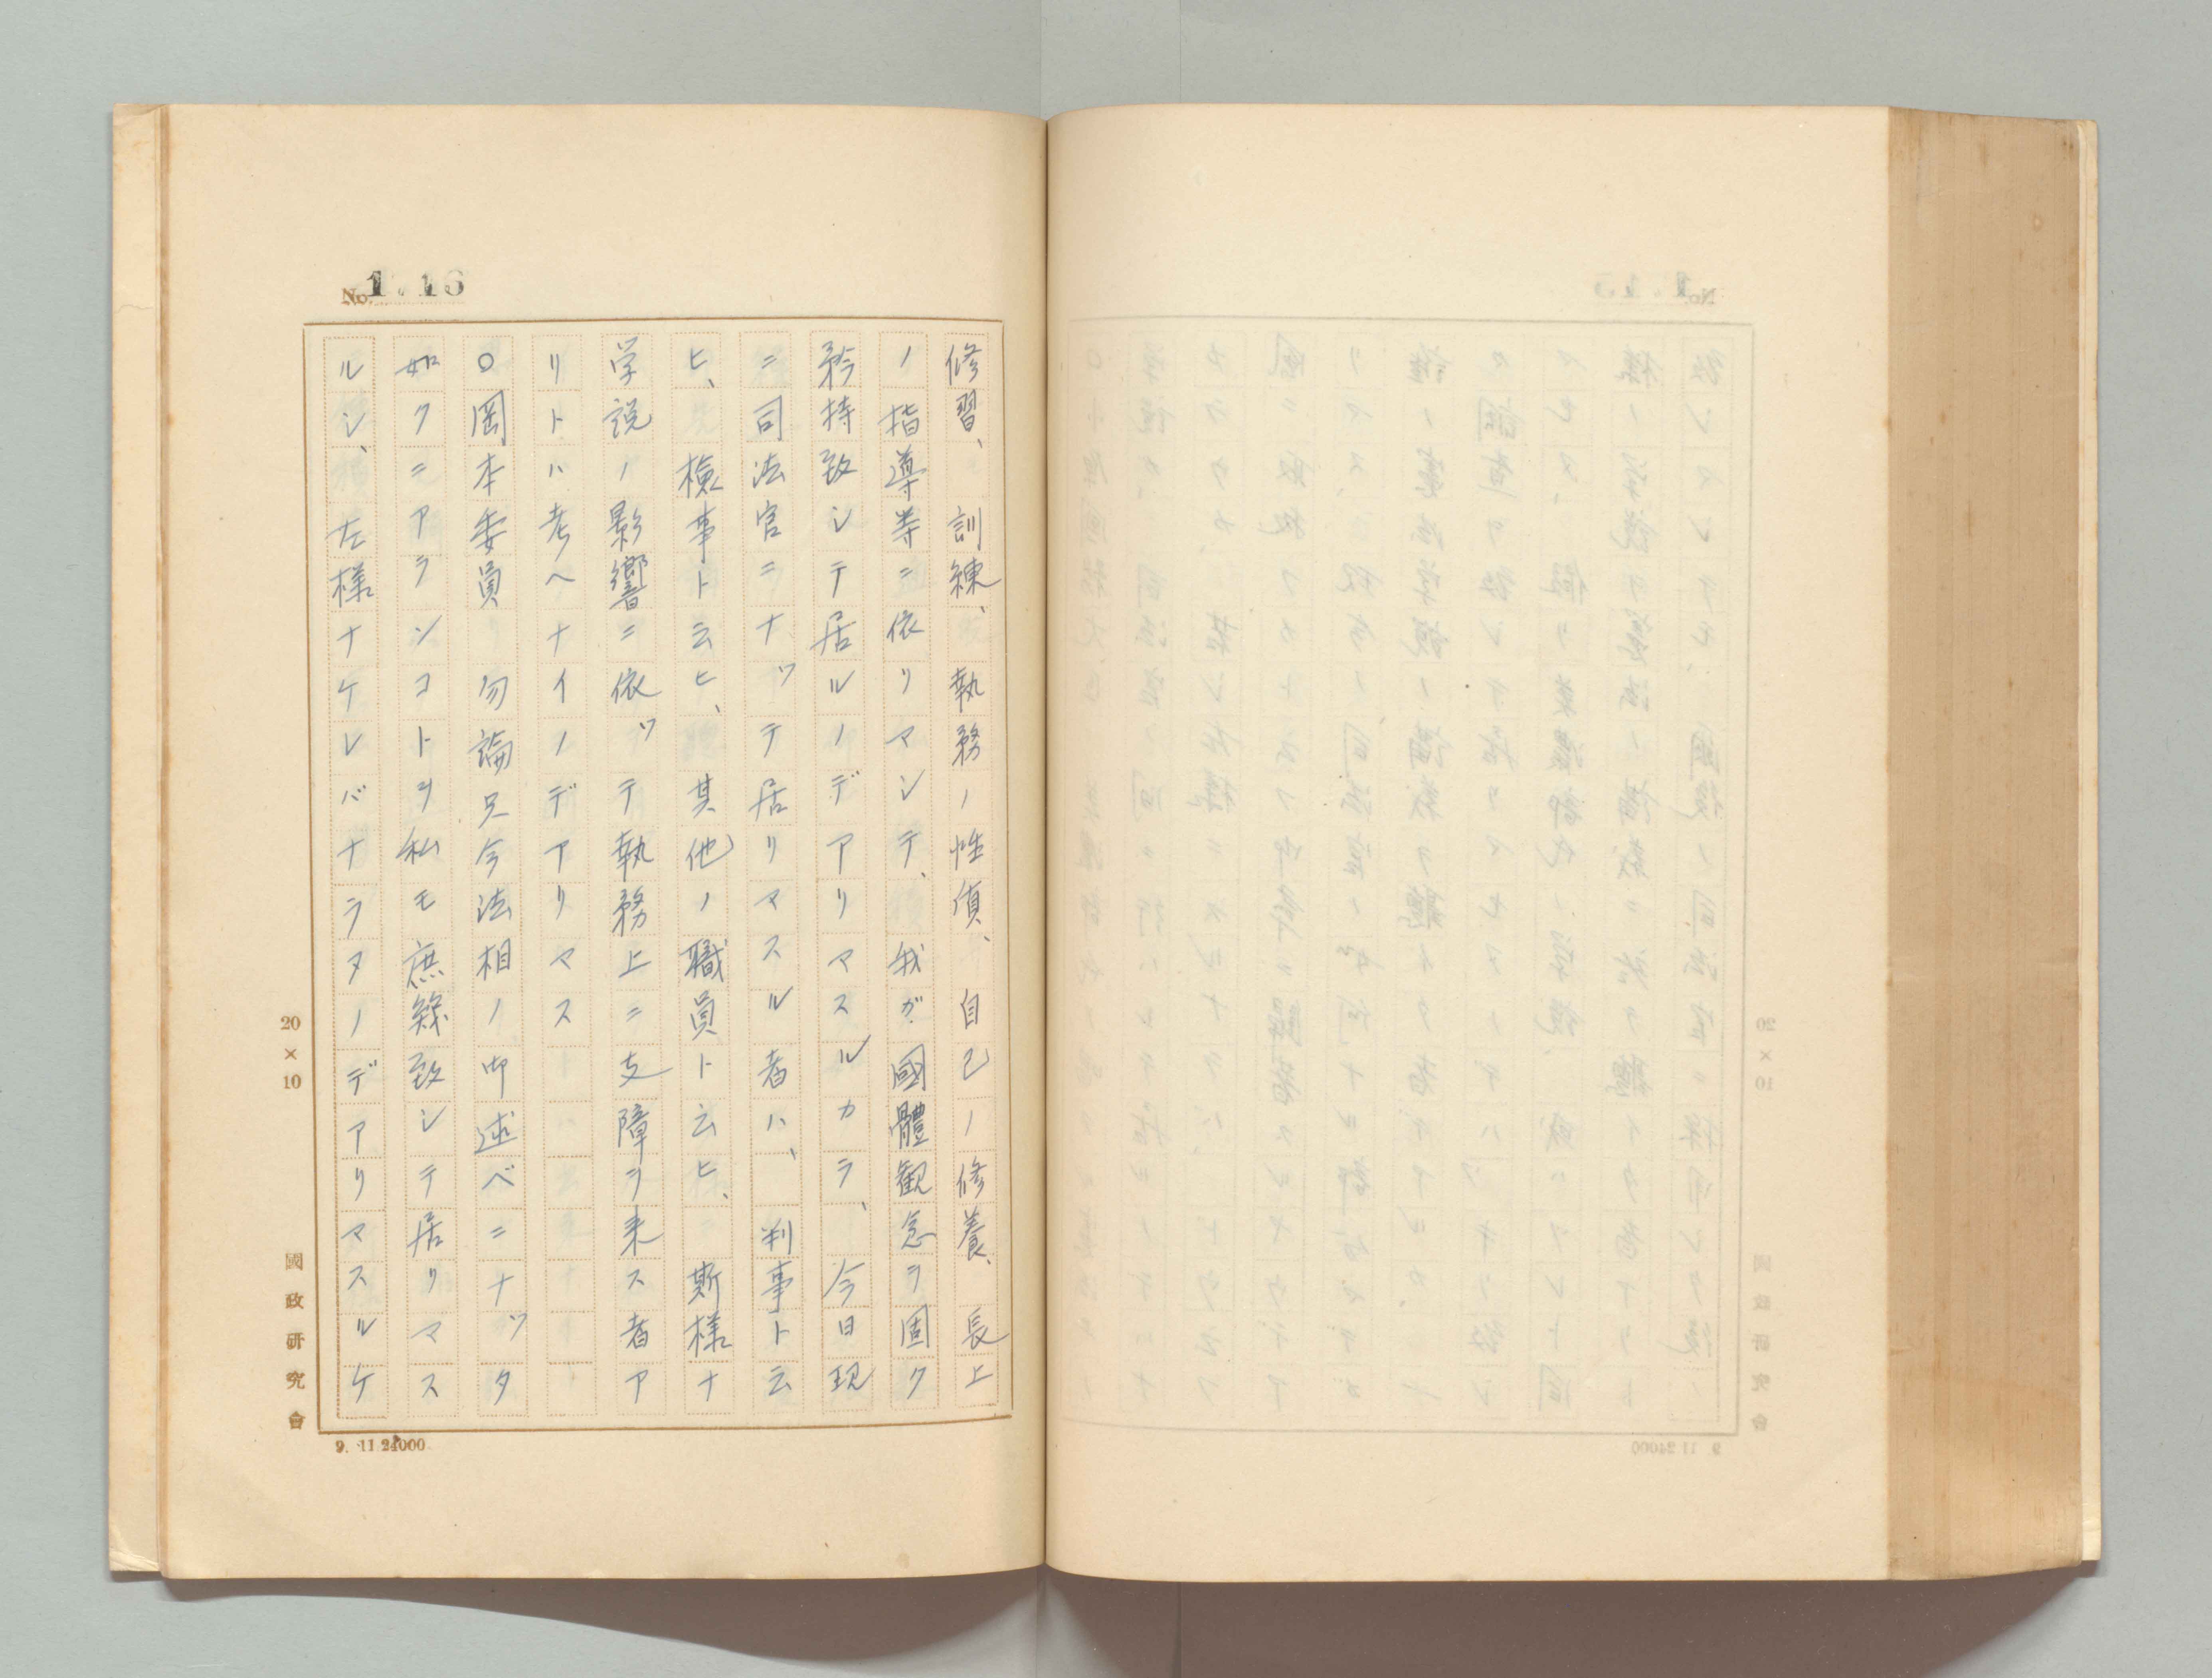 No. 1.16
修習、訓練、執務ノ性質、自己ノ修養、長上
ノ指導等ニ依リマシテ、我ガ國體観念ヲ固ク
矜持致シテ居ルノデアリマスルカラ、今日現
ニ司法官ニナツテ居リマスル者ハ、判事ト云
ヒ、檢事ト云ヒ、其他ノ職員ト云ヒ、斯様ナ
学説ノ影響ニ依ツテ執務上ニ支障ヲ来ス者ア
リトハ考ヘナイノデアリマス
○岡本委員 勿論只今法相ノ御述ベニナツタ
如クニアランコトヲ私モ庶幾致シテ居リマス
ルシ、左様ナケレバナラヌノデアリマスルケ
20×10
國政研究會
9. 11 24000